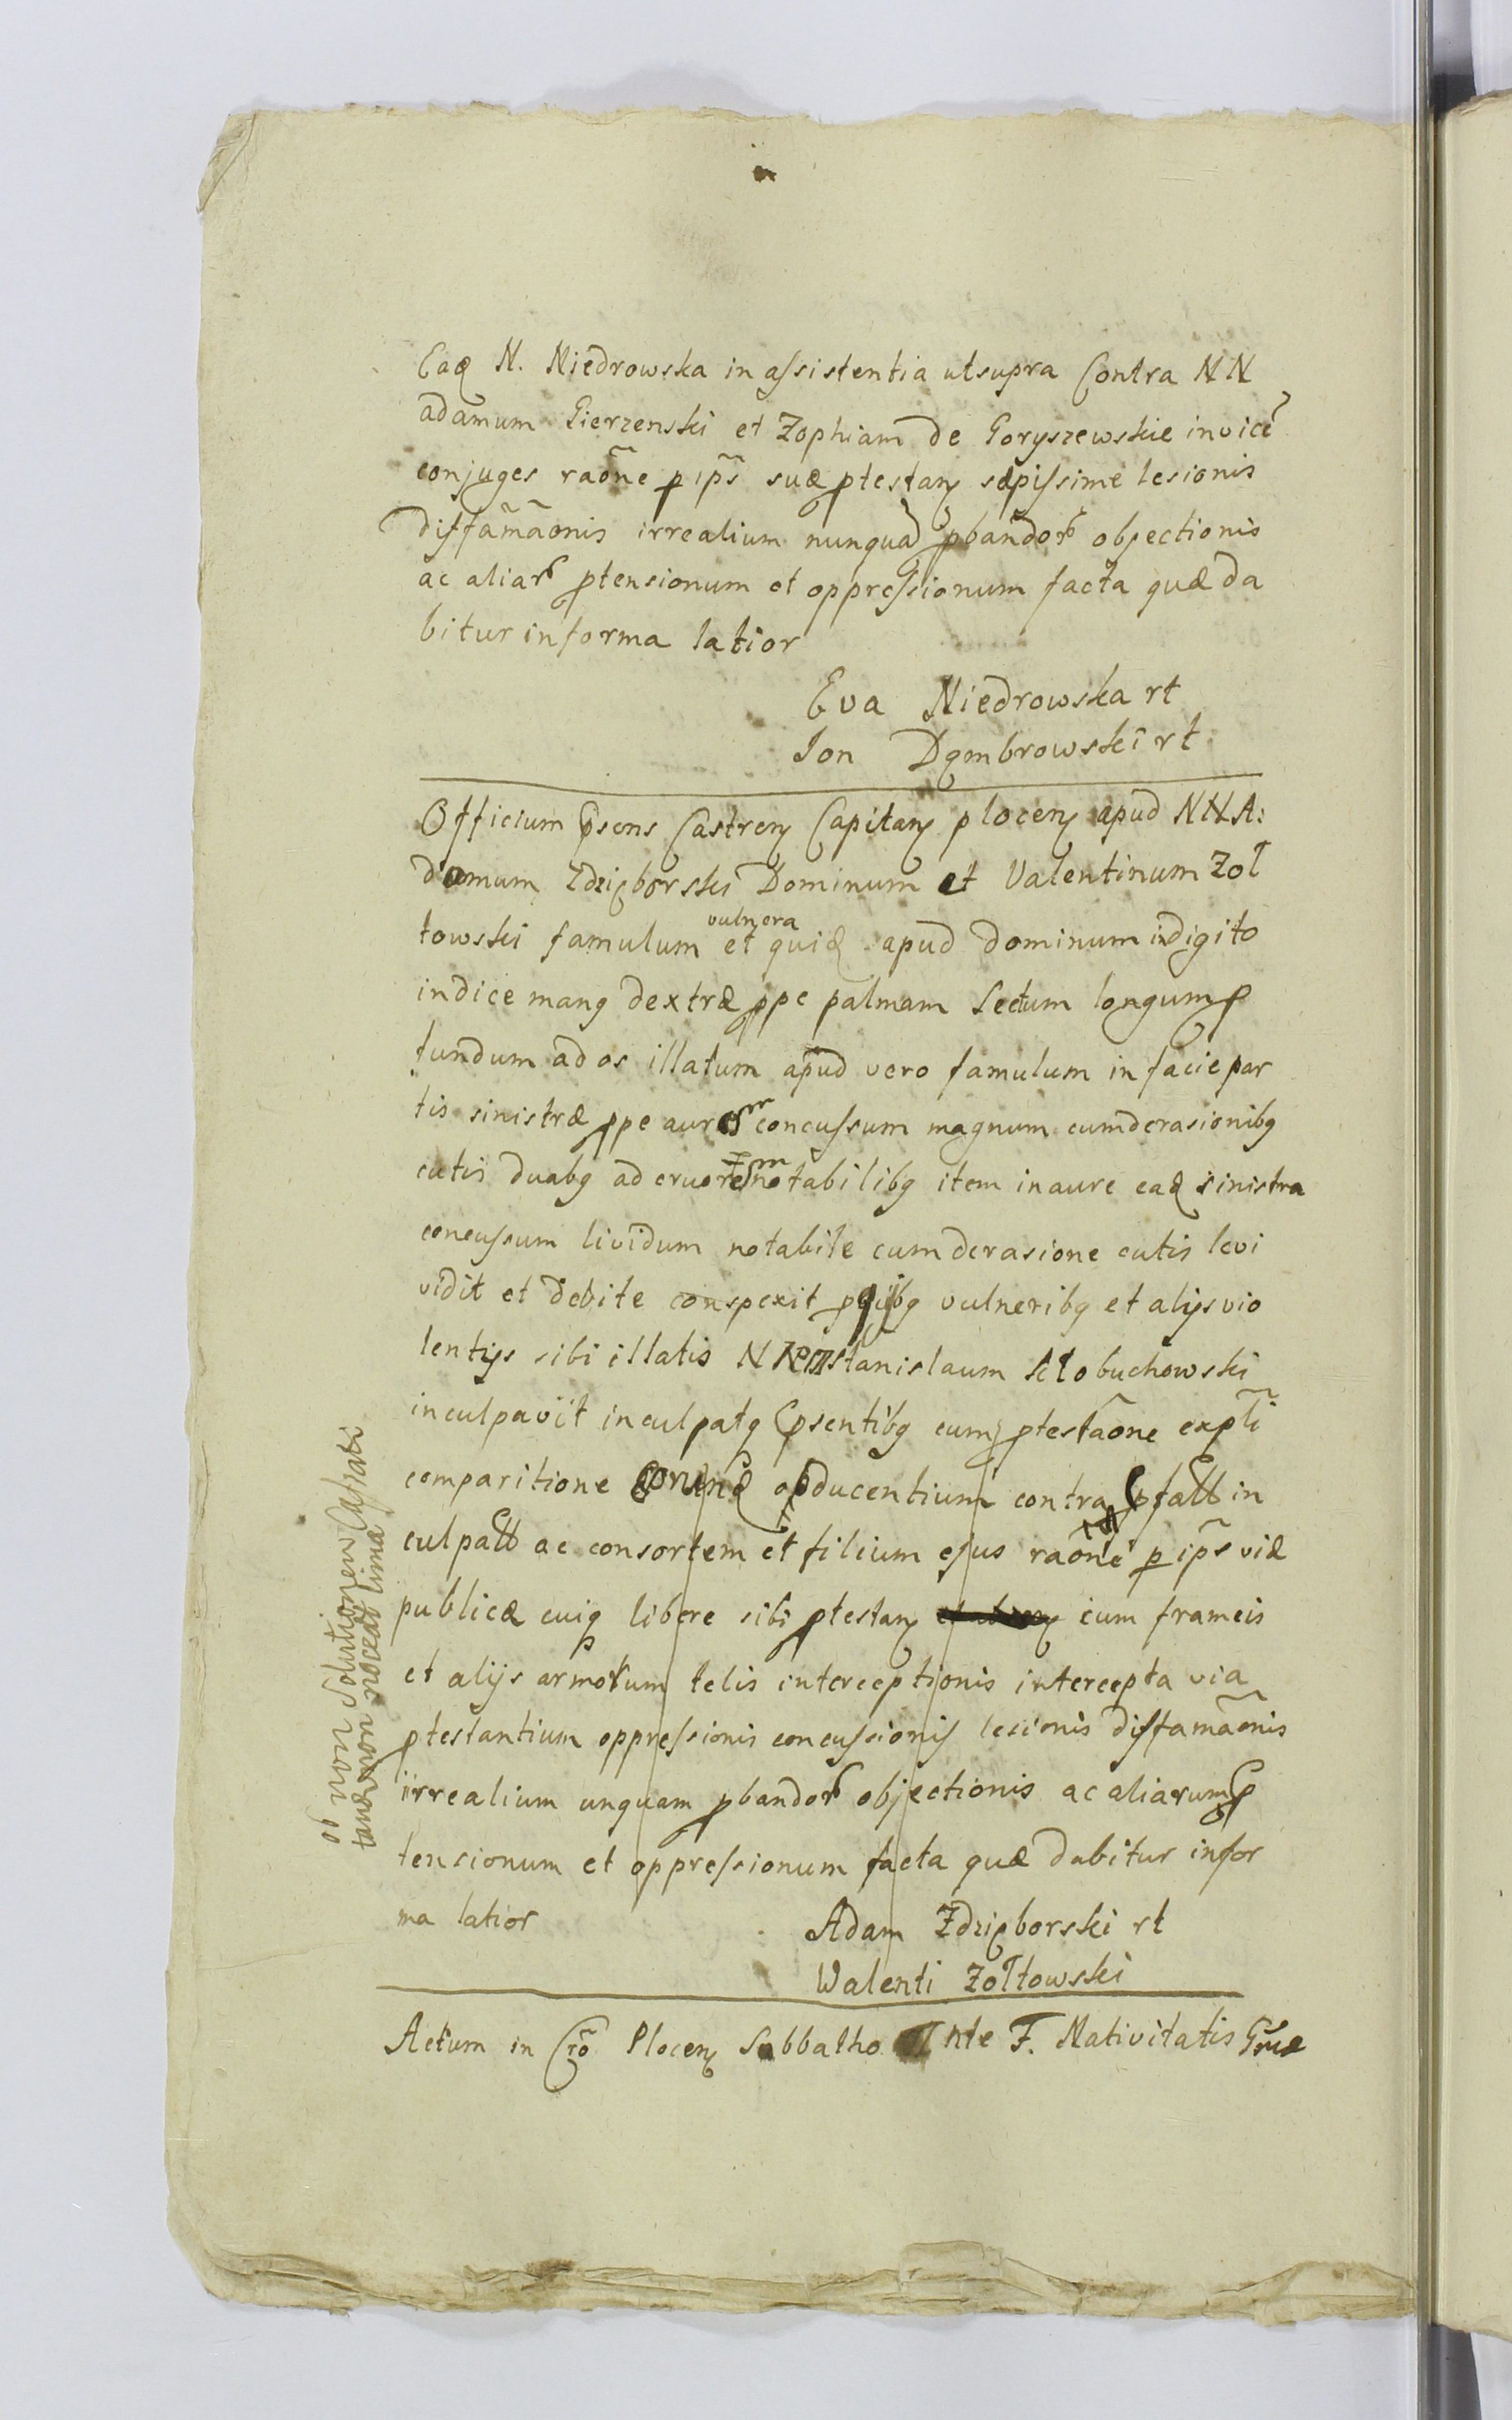 Eadꝫ N. Niedrowska in assistentia utsupra Contra NN
adamum Gierzenski et Zophiam de Goryszewskie invicẽ
conjuges raõne p ips̃ suæ ptestanꝫ sæpissime lesionis
diffamãonis irrealium nunquã pbandorꝫ objectionis
ac aliarꝫ ptensionum et oppressionum facta quæ da
bitur informa latior
Eva Niedrowska rt
Jon Dąmbrowski rt
Officium Psens Castrenꝫ Capitanꝫ plocenꝫ apud NNA:
damum Zdzięborski Dominum et Valentinum Zoł
towski famulum et vulnera quidꝫ apud dominum indigito
indice manꝯ dextræ ppe palmam Sectum longum p
fundum ad os illatum apud vero famulum in facie par
tis sinistræ ppe aurem concussum magnum cumderasionibꝯ
cutis duabꝯ ad cruorem notabilibꝯ item inaure eadꝫ sinistra
concussum lividum notabile cumderasione cutis levi
vidit et debite conspexit p quibꝯ vulneribꝯ et alijs vio
lentijs sibi illatis N Stanislaum Kłobuchowski
inculpavit inculpatꝯ Psentibꝯ cum ptestãone expłi
comparitione eorundꝫ obducentium contra pfatt in
culpatt ac consortem et filium ejus raõne p ips̃ viæ
publicæ cuiqꝫ libere sibi ptestanꝫ cum frameis
et alijs armorum telis interceptionis intercepta via
ptestantium oppressionis concussionis lesionis diffamãonis
irrealium unquam pbandorꝫ objectionis ac aliarum p
tensionum et oppressionum facta quæ dabitur infor
ma latior
Adam Zdzięborski rt
Walenti Zołtowski
ob non Solutionem Cassati
tandꝫ non noceat lima
Actum in Cro Plocenꝫ Sabbatho Ante F. Nativitatis Gruæ